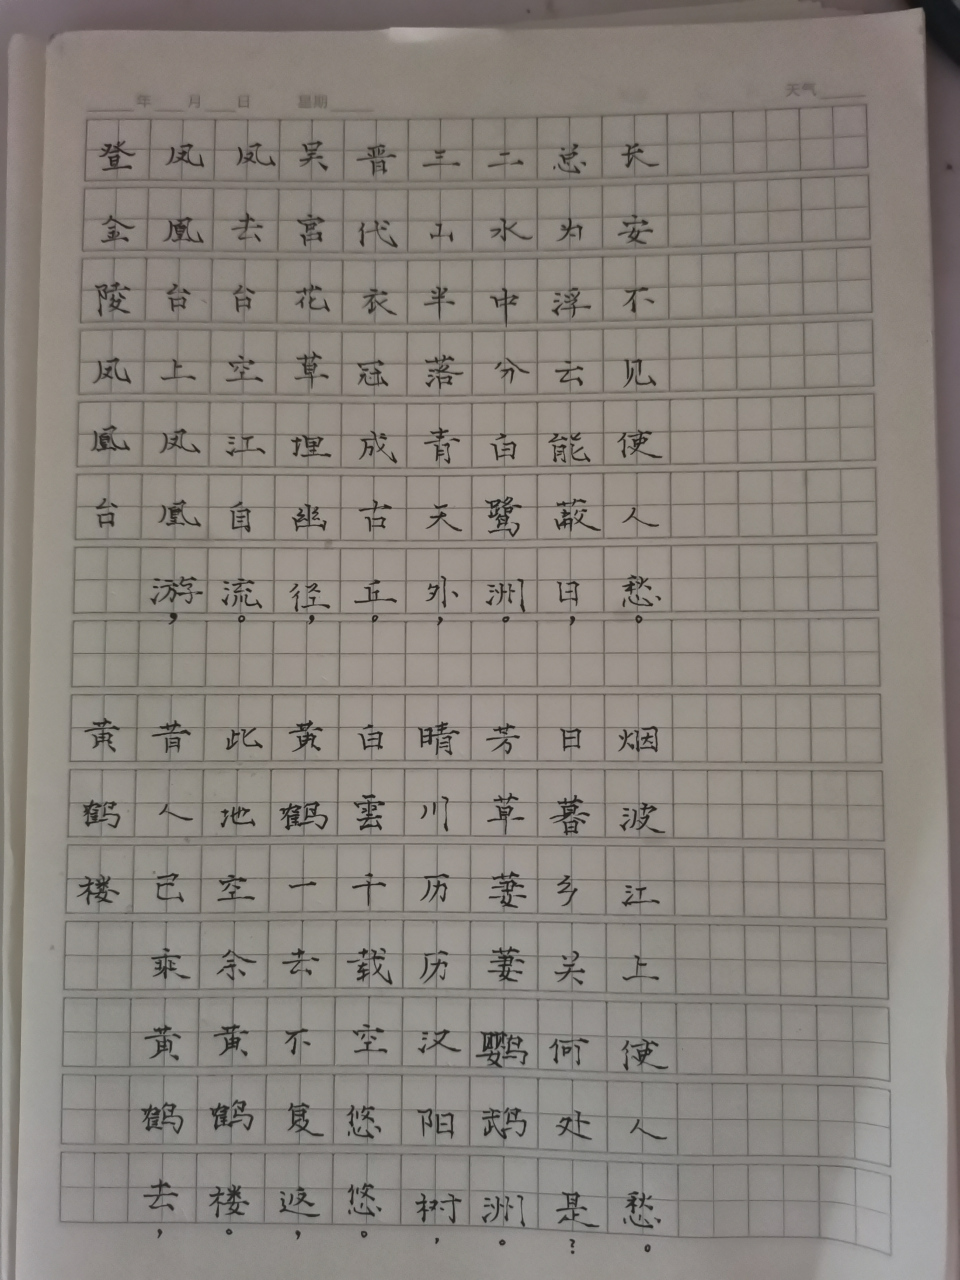 年 月 日 星期 天气
登金陵凤凰台
凤凰台上凤凰游，
凤去台空江自流。
吴宫花草埋幽径，
晋代衣冠成古丘。
三山半落青天外，
二水中分白鹭洲。
总为浮云能蔽日，
长安不见使人愁。
黄鹤楼
昔人已乘黄鹤去，
此地空余黄鹤楼。
黄鹤一去不复返，
白雲千载空悠悠。
晴川历历汉阳树，
芳草萋萋鹦鹉洲。
日暮乡关何处是？
烟波江上使人愁。